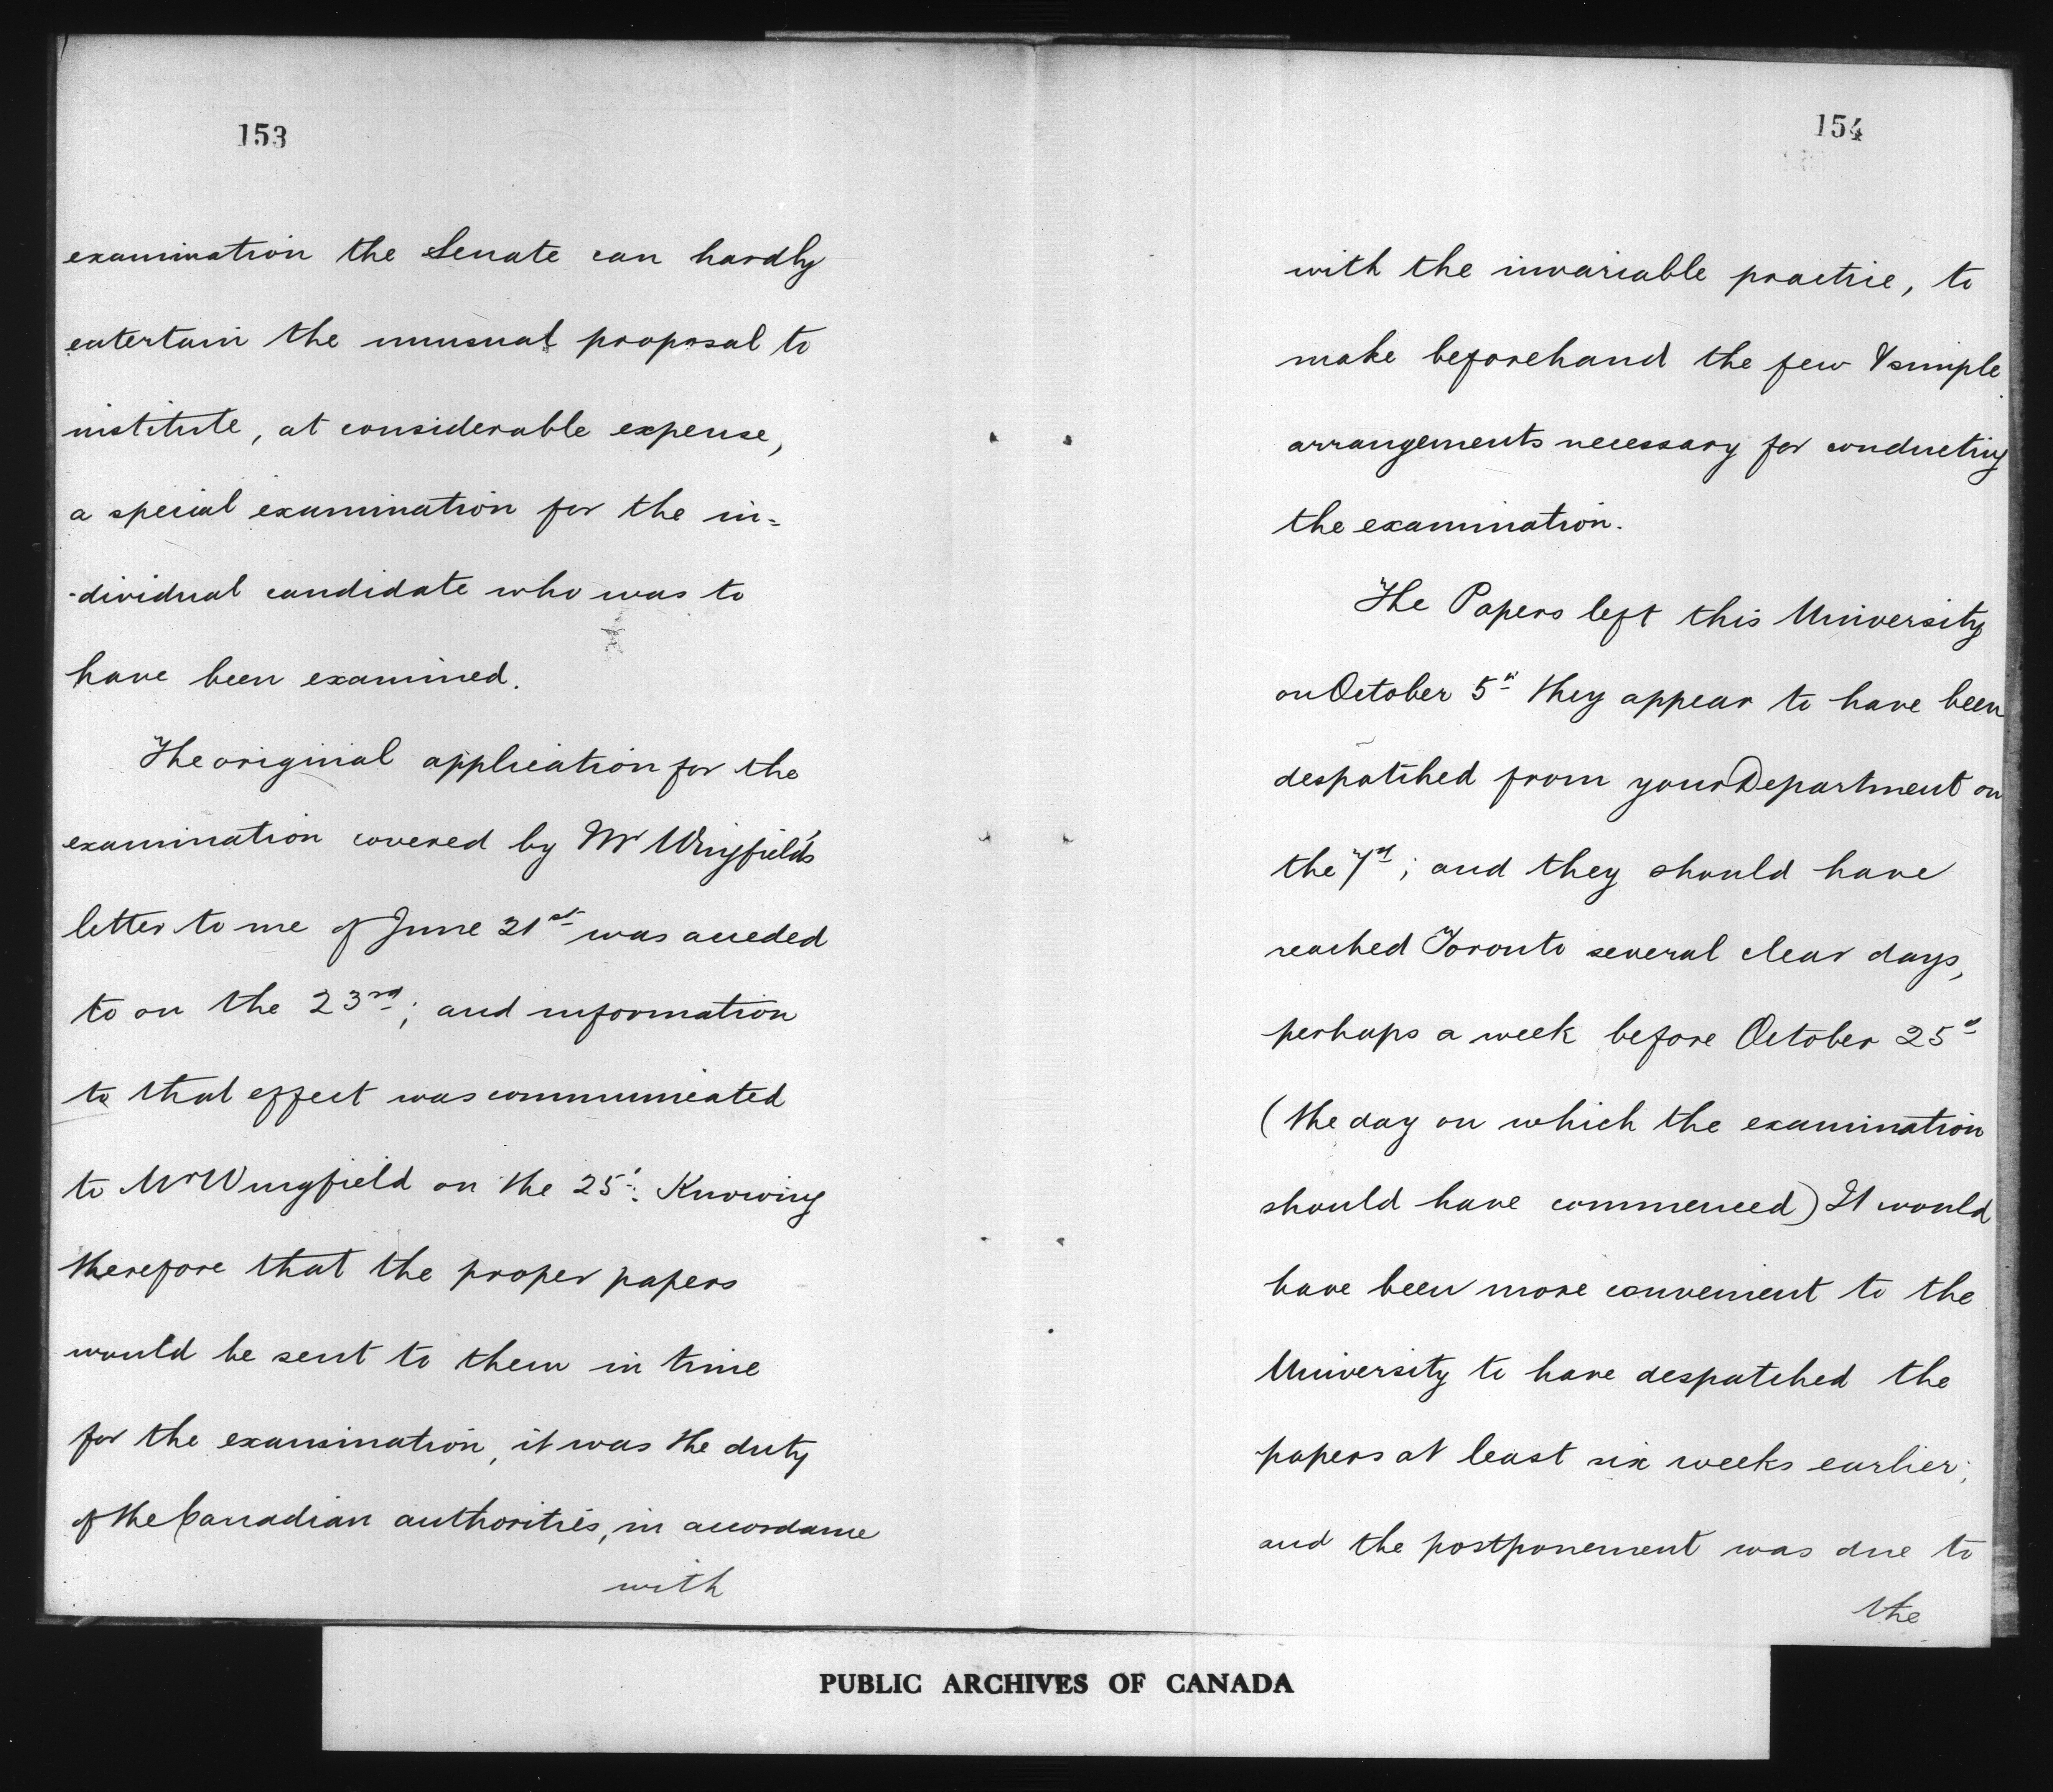 153
examination the Senate can hardly
entertain the unusual proposal to
institute, at considerable expense,
a special examination for the in=
-dividual candidate who was to
have been examined.
The original application for the
examination covered by Mr Wingfield's
letter to me of June 21st was acceded
to on the 23rd; and information
to that effect was communicated
to Mr Wingfield on the 25t. Knowing
therefore that the proper papers
would be sent to them in time
for the examination, it was the duty
of the Canadian authorities, in accordance
with
154
with the invariable practice, to
make beforehand the few & simple
arrangements necessary for conducting
the examination.
The Papers left this University
on October 5th they appear to have been
despatched from your Department on
the 7th; and they should have
reached Toronto several clear days,
perhaps a week before October 25th
(the day on which the examination
should have commenced) It would
have been more convenient to the
University to have despatched the
papers at least six weeks earlier;
and the postponement was due to
the
PUBLIC ARCHIVES OF CANADA